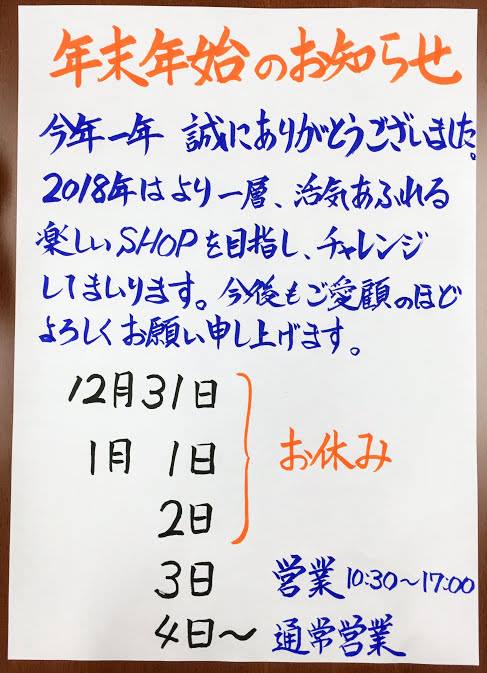 年末年始のお知らせ
今年一年 誠にありがとうございました。
2018年はより一層、活気あふれる
楽しいSHOPを目指し、チャレンジ
してまいります。今後もご愛顧のほど
よろしくお願い申し上げます。
12月31日
1月 1日 お休み
2日
3日 営業 10:30～17:00
4日～ 通常営業